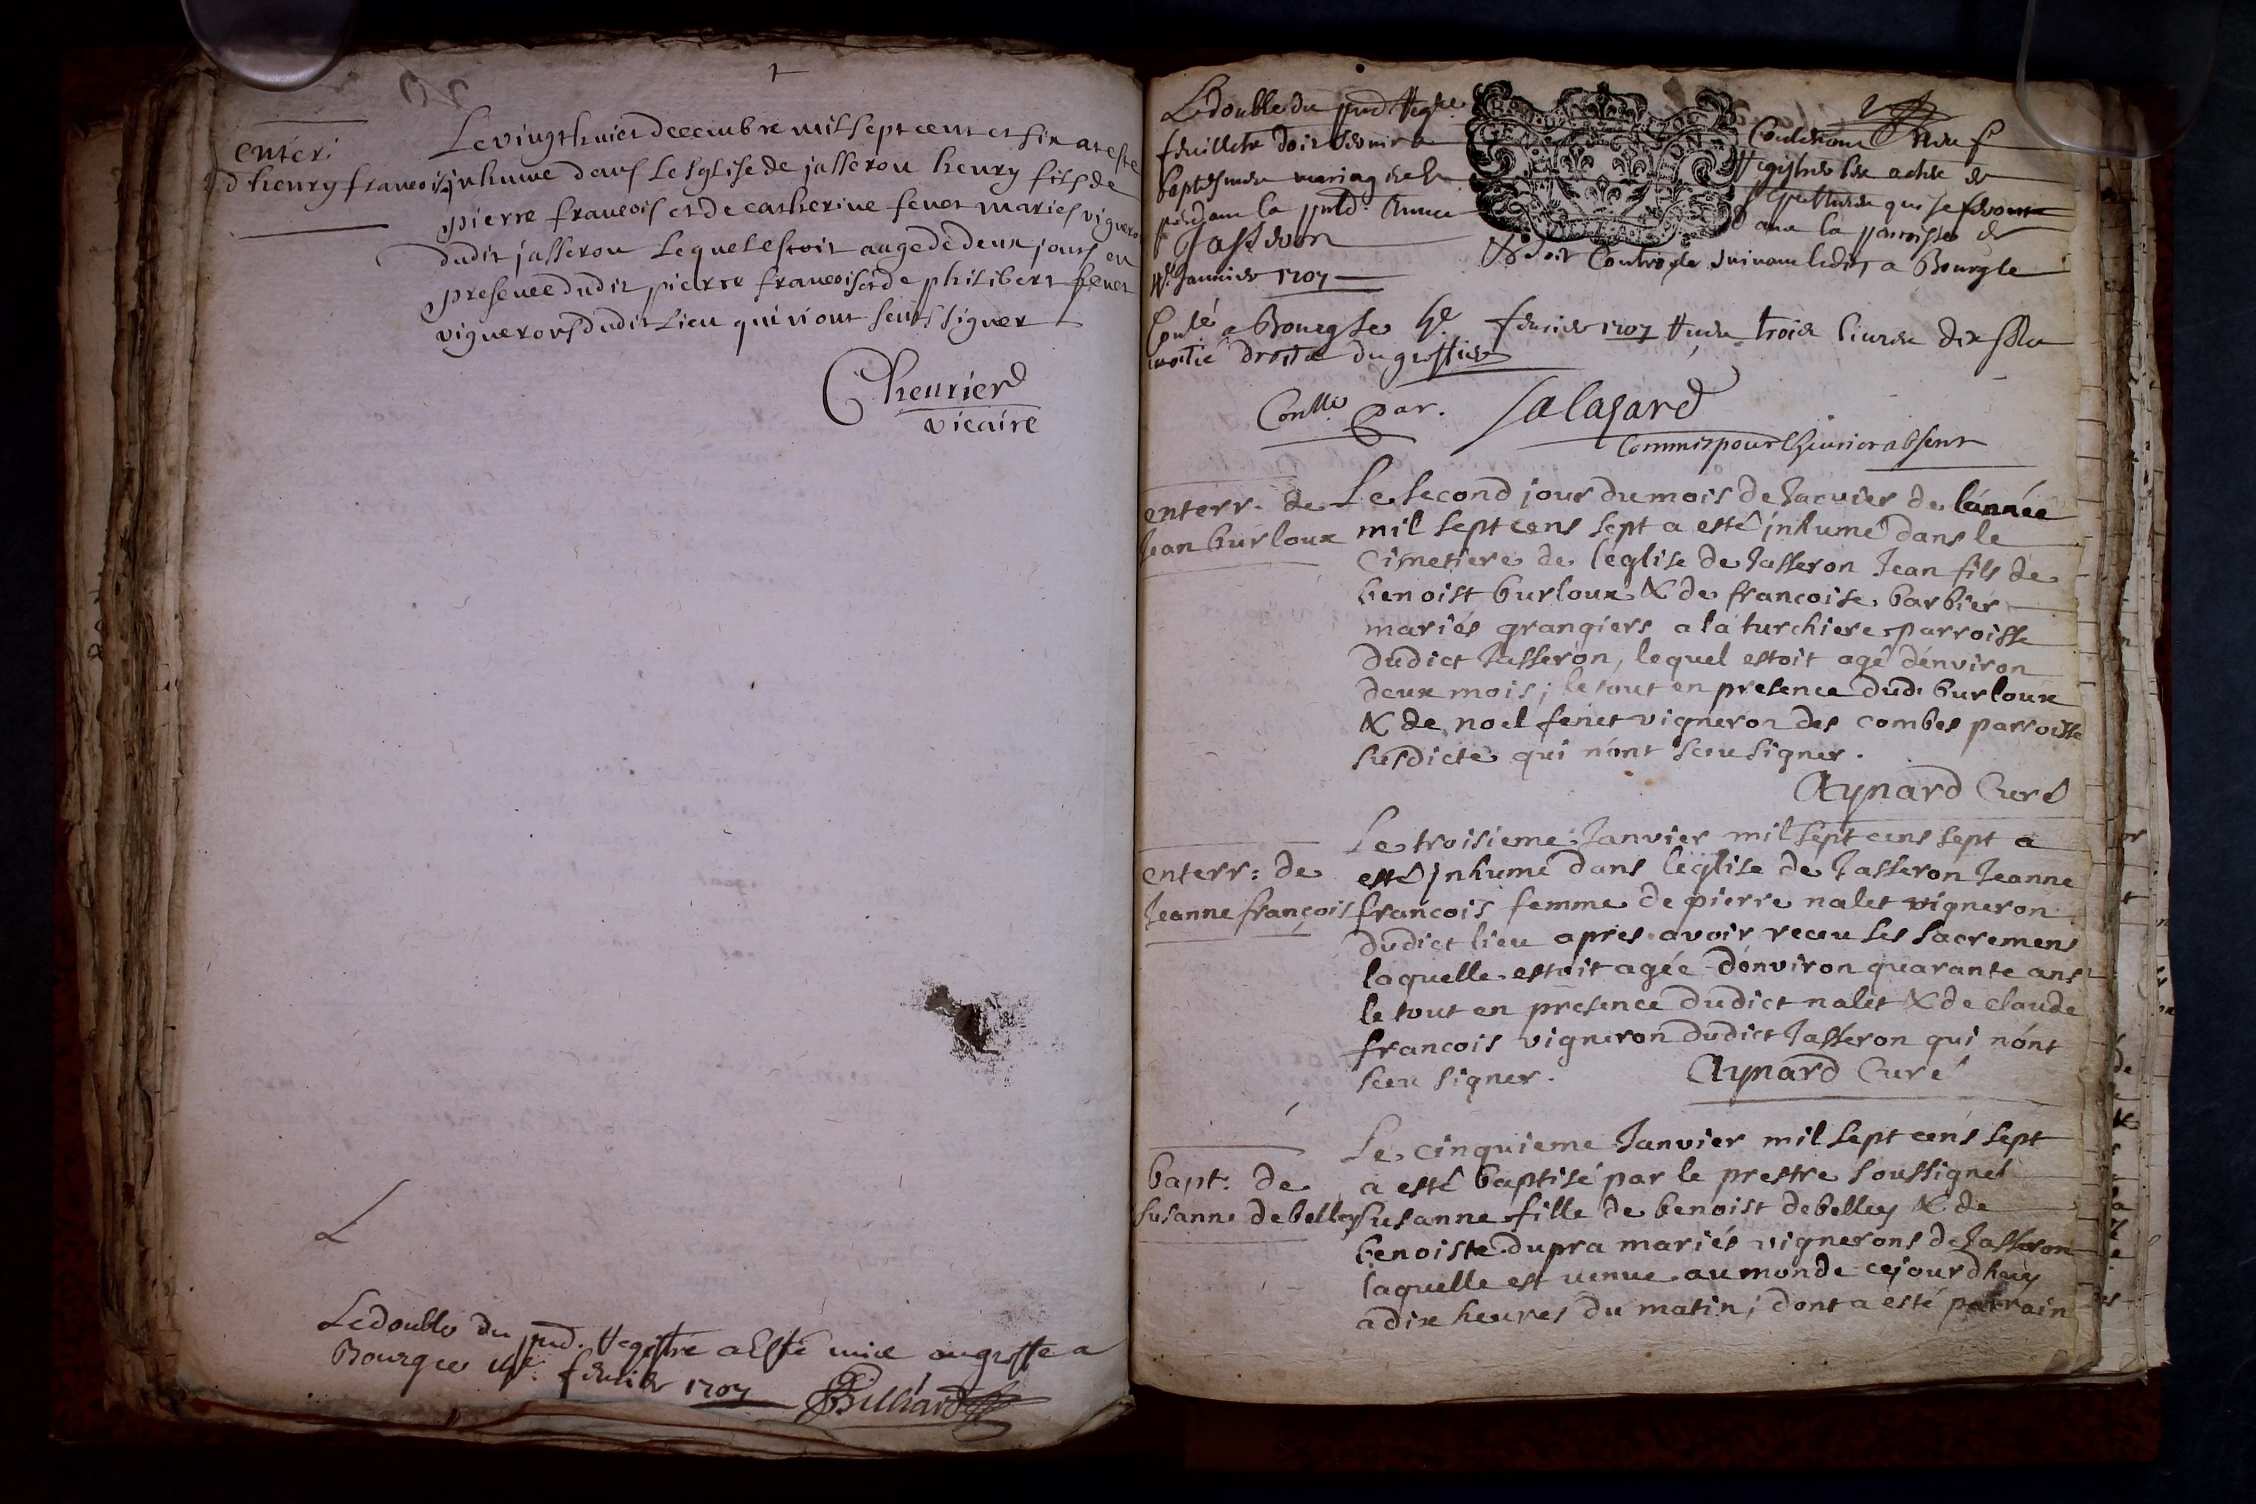 enter.
d'henry francois
Le vingt huict decembre mil sept cent et six at este
inhume dans Lesglise de jasseron henry fils de
pierre francois et de catherine fenet maries vignerons
dudit jasseron Lequel estoit aagé de deux jours en
presence dudit pierre francois et de philibert fenet
vignerons dudit Lieu qui n'ont seuts signer
Cheurier
vicaire
Le double du pnt. Registre a Esté mis au greffe a
Bourg ce fevrier 1707 Billiard
Le double du pnt Regre.
feuillets doit servir a
baptesmes mariages &
pendant la pnte. Annee
Jasseron
Janvier 1707
GEN
Contenant Neuf
Registrer les actes de
sepultures qui se feront
dans la parroisse de
& doit Controle suivant ledit a Bourg le
Conlé a Bourg le fevrier 1707 Receu trois livres dix sols
moitié droits du greffier
Conlle. par. Salazard
Commis pour absent
enterr. de
Jean burloux
Le second jour du mois de Janvier de l'année
mil sept cens sept a esté jnhumé dans le
Cimetiere de l'eglise de Jasseron Jean fils de
benoist burloux & de francoise barbier
mariés grangiers a la turchiere parroisse
dudict Jasseron, lequel estoit agé d'environ
deux mois; le tout en presence dud. burloux
& de noel fenet vigneron des combes parroisse
susdicte qui n'ont sceu signer.
Aynard Curé
enterr: de
Jeanne françois
Le troisieme Janvier mil sept cens sept a
esté jnhumé dans l'eglise de Jasseron Jeanne
francois femme de pierre nalet vigneron
dudict lieu apres avoir receu les sacremens
laquelle estoit agée d'environ quarante ans
le tout en presence dudict nalet & de claude
francois vigneron dudict Jasseron qui n'ont
sceu signer. Aynard Curé
bapt: de
susanne debelley
Le cinquieme Janvier mil sept cens sept
a esté baptisé par le prestre soussigné
susanne fille de benoist debelley & de
benoiste dupra mariés vignerons de Jasseron
laquelle est venue au monde cejourdhuy
a dix heures du matin; dont a esté parrain